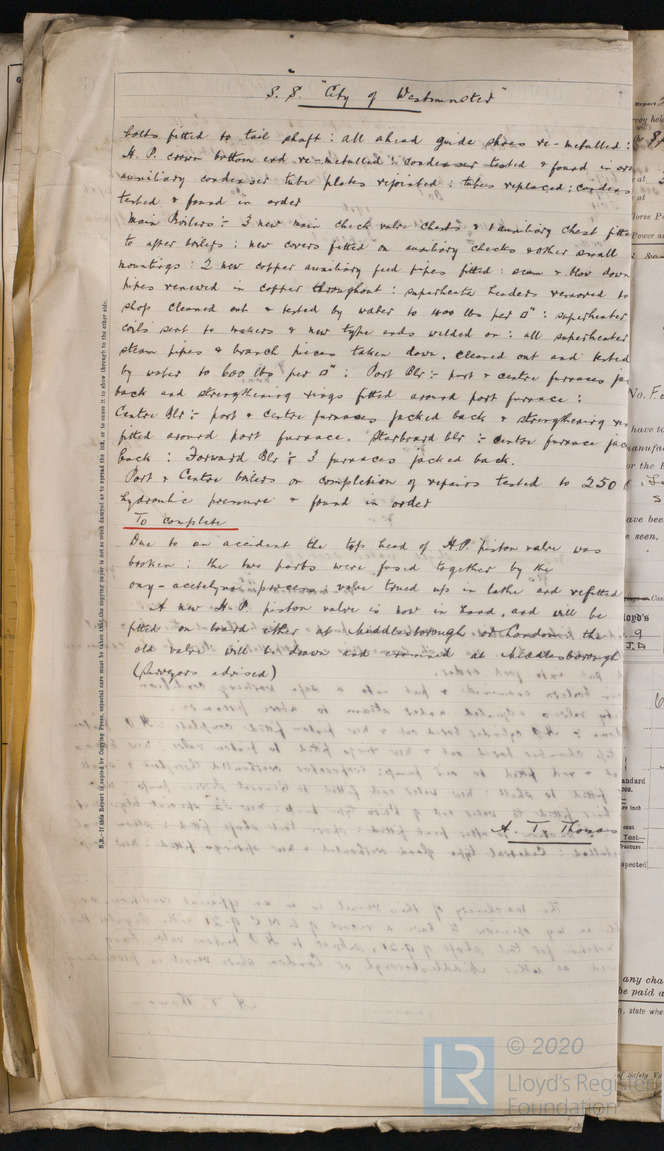 S. S. "City of Westminster"
bolts fitted to tail shaft : all ahead guide shoes re-metalled :
H. P. crown bottom end re-metalled : Condenser tested & found in
auxiliary condenser tube plates rejointed : tubes replaced ; condens
tested & found in order
Main Boilers :- 3 new main check valve chests & 1 auxiliary chest fitte
to after boilers : new covers fitted on auxiliary checks & other small
mountings : 2 new copper auxiliary feed pipes fitted : scum & blow down
pipes renewed in copper throughout : superheater headers removed to
shop cleaned out & tested by water to 1000 lbs per □" : superheater
coils sent to makers & new type ends welded on : all superheater
steam pipes & branch pieces taken down, cleaned out and tested
by water to 600 lbs per □" : Port Blr :- port & centre furnaces ja
back and strengthening rings fitted around port furnace :
Centre Blr :- port & centre furnaces jacked back & strengthening
fitted around port furnace. Starboard blr :- centre furnace jac
back : Forward Blr :- 3 furnaces jacked back.
Port & Centre boilers on completion of repairs tested to 250
hydraulic pressure & found in order
To complete
Due to an accident the top head of H.P. piston valve was
broken : the two parts were fused together by the
oxy-acetelyne process : valve turned up in lathe and refitted
A new H. P. piston valve is now in hand, and will be
fitted on board either at Middlesborough or London the
old valve will be drawn and examined at Middlesborough
(Surveyors advised)
A. T. Thomas
N.B.—If this Report is copied by Copying Press, especial care must be taken that the copying paper is not so much damped as to spread the ink, or to cause it to show through to the other side.
© 2020
LR
Lloyd's Register
Foundation